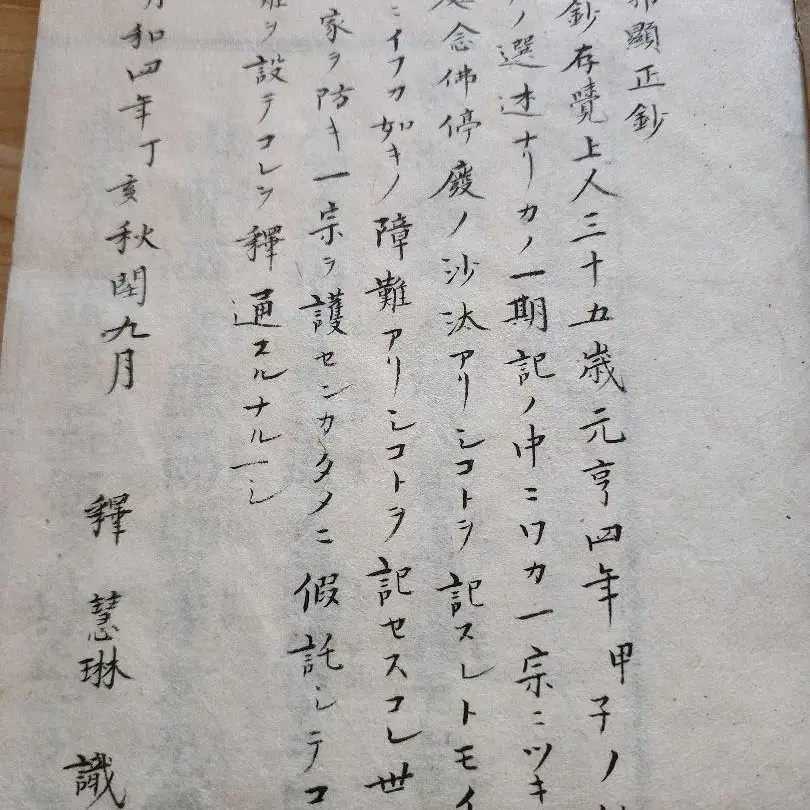 顯正鈔
鈔存覺上人三十五歳元亨四年甲子ノ
ノ選述ナリカノ一期記ノ中ニワカ一宗ニツキ
念佛停廢ノ沙汰アリシコトヲ記スレトモイ
ニイフカ如キノ障難アリシコトヲ記セスコレ世
家ヲ防キ一宗ヲ護センカタメニ假託シテコ
ヲ設テコレヲ釋通スルナルヘシ
和四年丁亥秋閏九月 釋慧琳識